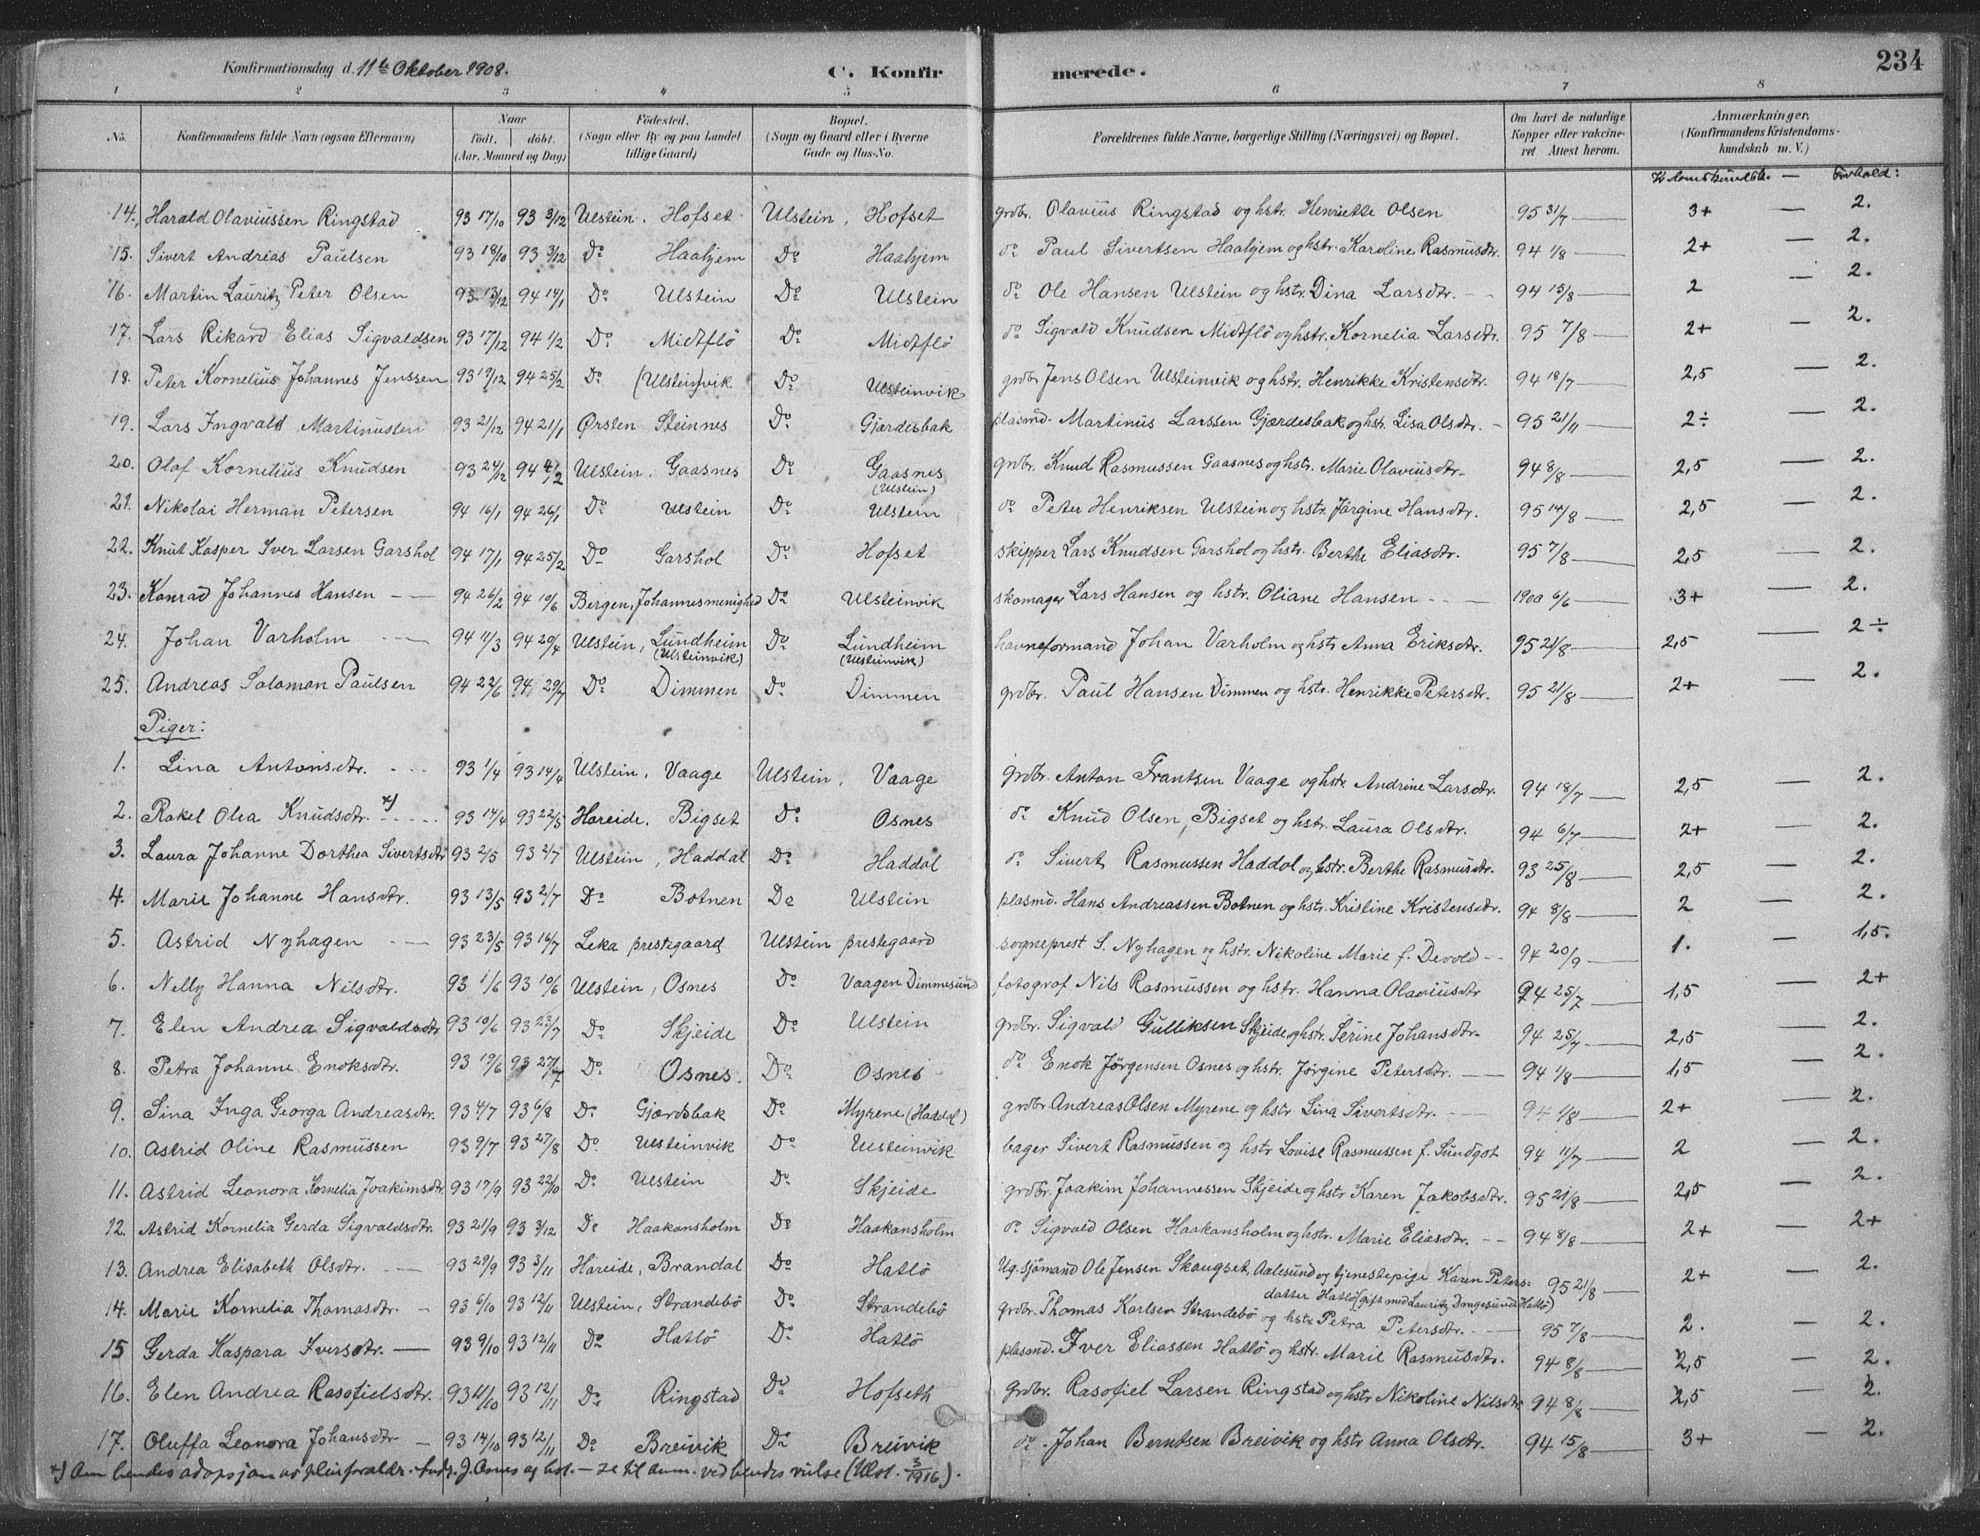 Konfirmationsdag d. 11te Oktober 1908. C. Konfirmerede. 234
1 2 3 4 5 6 7 8
No. Konfirmandens fulde Navn (ogsaa Efternavn) Naar født. døbt. (Aar, Maaned og Dag) Fødested. (Sogn eller By og paa Landet tillige Gaard) Bopæl. (Sogn og Gaard eller i Byerne Gade og Hus-No. Forældrenes fulde Navne, borgerlige Stilling (Næringsvei) og Bopæl. Om havt de naturlige Kopper eller vakcineret. Attest herom. Anmærkninger. (Konfirmandens Kristendomskundskab m. V.)
Forhold:
14. Harald Olaviussen Ringstad 93 17/10 93 3/12 Ulstein, Hofset Ulstein, Hofset grdbr. Olavius Ringstad og hstr. Henriette Olsen 95 31/7 — 3+ — 2.
15. Sivert Andreas Paulsen 93 18/10 93 3/12 Do Haahjem Do Haahjem do Paul Sivertsen Haahjem og hstr. Karoline Rasmusdtr. 94 1/8 — 2+ — 2.
16. Martin Lauritz Peter Olsen 93 13/12 94 14/1 Do Ulstein Do Ulstein do Ole Hansen Ulstein og hstr. Dina Larsdtr. 94 15/8 — 2 — 2.
17. Lars Rikard Elias Sigvaldsen 93 17/12 94 1/2 Do Midtflö Do Midtflö do Sigvald Knudsen Midtflö og hstr. Kornelia Larsdtr. 95 7/8 — 2+ — 2.
18. Peter Kornelius Johannes Jenssen 93 19/12 94 25/2 Do (Ulstein)vik Do Ulsteinvik grdbr. Jens Olsen Ulsteinvik og hstr. Henrikke Kristensdtr. 94 18/7 — 2,5 — 2.
19. Lars Ingvald Martinussen 93 21/12 94 21/1 Ørsten Steinnes Do Gjærdesbak plasmd. Martinus Larssen Gjærdesbak og hstr. Lisa Olsdtr. 95 21/11 2÷ — 2.
20. Olaf Kornelius Knudsen 93 24/12 94 4/2 Ulstein, Gaasnes Do Gaasnes (Ulstein) grdbr. Knud Rasmussen Gaasnes og hstr. Marie Olaviusdtr. 94 8/8 — 2,5 — 2.
21. Nikolai Herman Petersen 94 16/1 94 26/1 Do Ulstein Do Ulstein do Peter Henriksen Ulstein og hstr. Jörgine Hansdtr. 95 14/8 — 2,5 — 2.
22. Knut Kasper Iver Larsen Garshol 94 17/1 94 25/2 Do Garshol Do Hofset skipper Lars Knudsen Garshol og hstr. Berthe Eliasdtr. 95 7/8 — 2,5 — 2.
23. Konrad Johannes Hansen 94 26/2 94 10/6 Bergen, Johannesmenighed Do Ulsteinvik skomager Lars Hansen og hstr. Oliane Hansen 1900 6/6 — 3+ — 2.
24. Johan Varholm 94 11/3 94 20/4 Ulstein, Lundheim (Ulsteinvik) Do Lundheim (Ulsteinvik) havneformand Johan Varholm og hstr. Anna Eriksdtr. 95 21/8 — 2,5 — 2÷
25. Andreas Salaman Paulsen 94 22/6 94 29/7 Do Dimmen Do Dimmen grdbr. Paul Hansen Dimmen og hstr. Henrikke Petersdtr. 95 21/8 — 2+ — 2.
Piger:
1. Lina Antonsdtr. 93 1/4 93 14/4 Ulstein, Vaage Ulstein, Vaage grdbr. Anton Frantsen Vaage og hstr. Andrine Larsdtr. 94 18/7 — 2,5 — 2.
2. Rakel Olea Knudsdtr. x) 93 14/4 93 22/5 Hareide, Bigset Do Osnes do Knud Olsen, Bigset og hstr. Laura Olsdtr. 94 6/7 — 2+ — 2.
3. Laura Johanne Dorthea Sivertsdtr 93 2/5 93 2/7 Ulstein, Haddal Do Haddal do Sivert Rasmussen Haddal og hstr. Berthe Rasmusdtr. 93 25/8 — 2,5 — 2.
4. Marie Johanne Hansdtr. 93 13/5 93 2/7 Do Botnen Do Ulstein plasmd. Hans Andreassen Botnen og hstr. Kristine Kristensdtr. 94 8/8 — 2 — 2.
5. Astrid Nyhagen 93 23/5 93 16/7 Leka prestegaard Ulstein prestegaard sogneprest S. Nyhagen og hstr. Nikoline Marie f. Devold 94 20/9 — 1. — 1,5.
6. Nelly Hanna Nilsdtr. 93 1/6 93 10/6 Ulstein, Osnes Do Vaagen Dimmesund fotograf Nils Rasmussen og hstr. Hanna Olaviusdtr 94 25/7 — 1,5 — 2+
7. Elen Andrea Sigvaldsdtr 93 10/6 93 23/7 Do Skjeide Do Ulstein grdbr. Sigvald Gulliksen Skjeide og hstr. Serine Johansdtr. 94 25/7 — 2,5 — 2.
8. Petra Johanne Enoksdtr. 93 19/6 93 27/7 Do Osnes Do Osnes do Enok Jørgensen Osnes og hstr. Jörgine Petersdtr. 94 1/8 — 1,5 — 2.
9. Sina Inga Georga Andreasdtr. 93 4/7 93 6/8 Do Gjærdsbak Do Myrene (Haddal) grdbr Andreas Olsen Myrene og hstr Lina Sivertsdtr. 94 1/8 — 2+ — 2.
10. Astrid Oline Rasmussen 93 9/7 93 27/8 Do Ulsteinvik Do Ulsteinvik bager Sivert Rasmussen og hstr Lovise Rasmussen f. Sundgot 94 11/7 — 2 — 2.
11. Astrid Leonora Kornelia Joakimsdtr. 93 17/9 93 22/10 Do Ulstein Do Skjeide grdbr. Joakim Johannessen Skjeide og hstr Karen Jakobsdtr. 95 21/8 — 2,5 — 2.
12. Astrid Kornelia Gerda Sigvaldsdtr. 93 21/9 93 3/12 Do Haakansholm Do Haakansholm do Sigvald Olsen Haakansholm og hstr. Marie Eliasdtr. 94 8/8 — 2+ — 2+
13. Andrea Elisabeth Olsdtr. 93 29/9 93 3/11 Hareide, Brandal Do Hatlö Ug. sjömand Ole Jensen Skaugset, Aalesund og tjenestepige Karen Petersdatter Hatlö (gift med Lauritz Dragesund Hatlö) 95 21/8 — 2+ — 2.
14. Marie Kornelia Thomasdtr. 93 6/10 93 12/11 Ulstein, Strandebö Do Strandebö grdbr. Thomas Karlsen Strandebö og hstr Petra Petersdtr. 95 7/8 — 2. — 2.
15 Gerda Kaspara Iversdtr. 93 9/10 93 12/11 Do Hatlö Do Hatlö plasmd. Iver Eliassen Hatlö og hstr. Marie Rasmusdtr. 94 8/8 — 2,5 — 2.
16. Elen Andrea Rasofielsdtr. 93 11/10 93 12/11 Do Ringstad Do Hofseth grdbr. Rasofiel Larsen Ringstad og hstr Nikoline Nilsdtr 94 8/8 — 2,5 — 2.
17. Oluffa Leonora Johansdtr 93 14/10 93 12/11 Do Breivik Do Breivik do. Johan Berntsen Breivik og hstr Anna Olsdtr. 94 15/8 — 3+ — 2.
x) Om hendes adopsjon av pleieforældr. J. Osnes og hst. — se til anm. ved hendes vielse (Ulst. 3/1916).